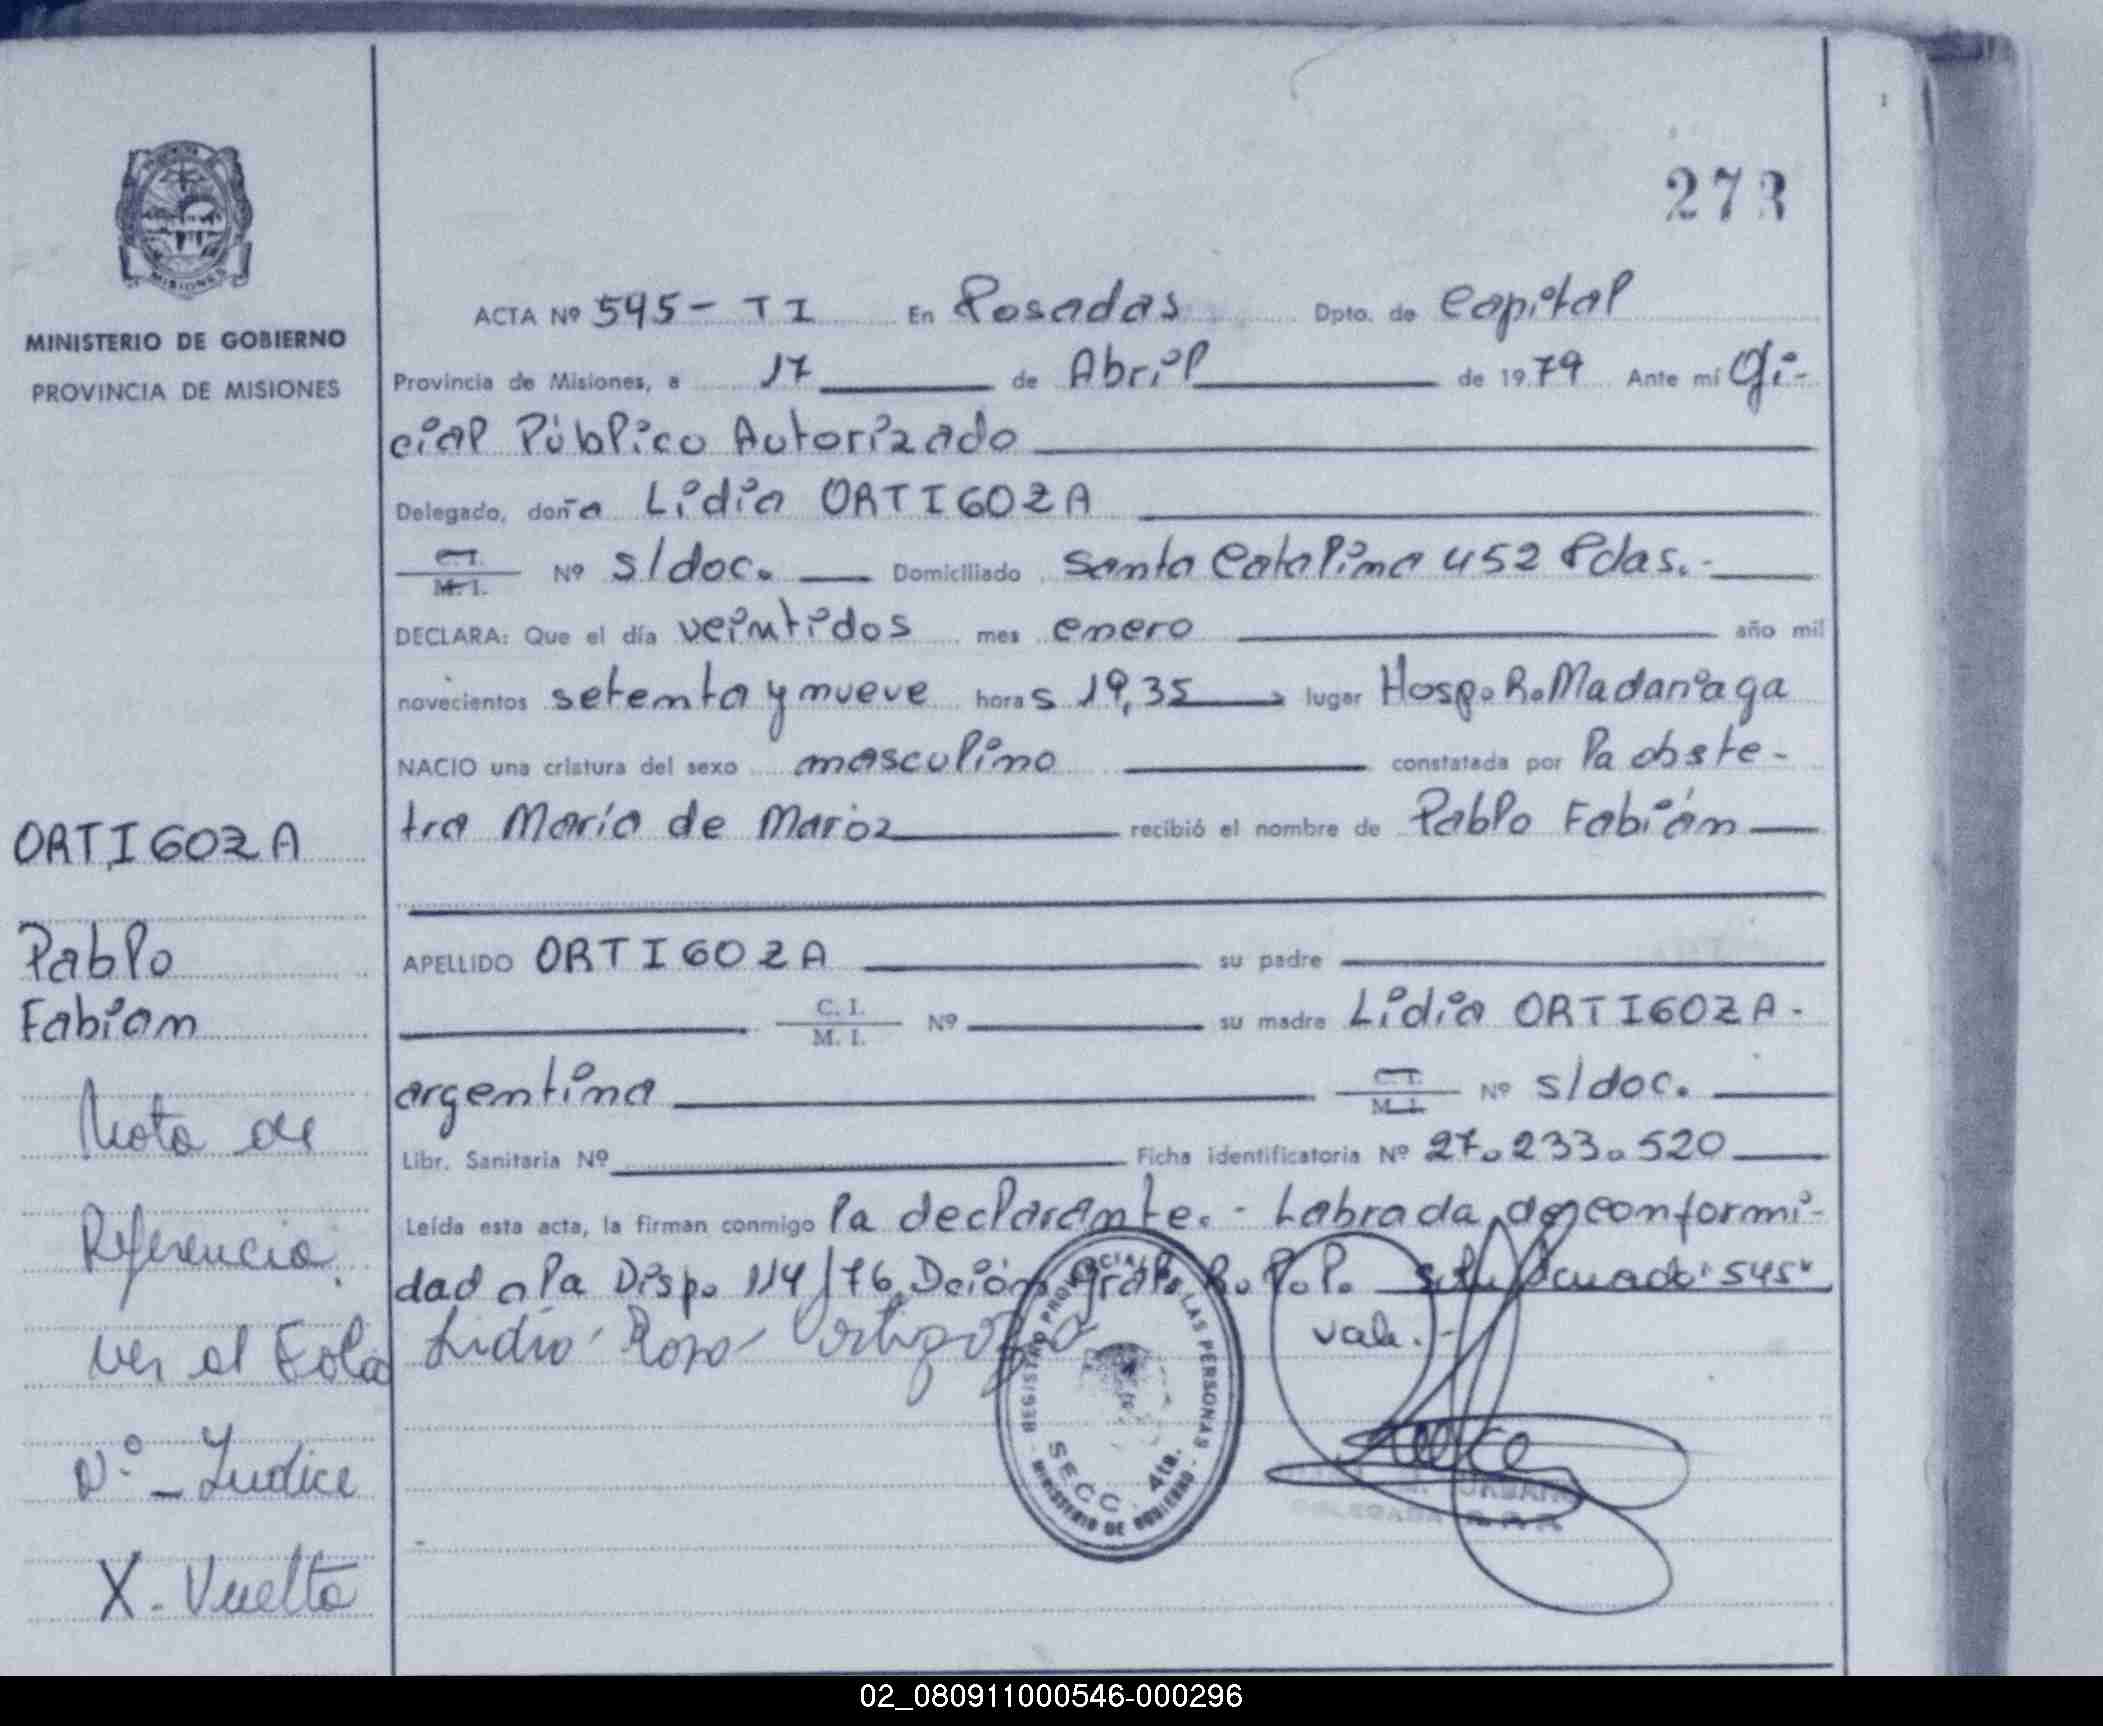 273
MISIONES
MINISTERIO DE GOBIERNO
PROVINCIA DE MISIONES
ACTA Nº 545 - TI En Posadas Dpto. de Capital
Provincia de Misiones, a 17 de Abril de 1979 Ante mí Ofi-
cial Público Autorizado
Delegado, doña Lidia ORTIGOZA
C.I. M.I. Nº s/doc. Domiciliado Santa Catalina 452 Pdas.-
DECLARA: Que el día veintidos mes enero año mil
novecientos setenta y nueve horas 19,35 lugar Hosp. R. Madariaga
NACIO una criatura del sexo masculino constatada por la obste-
tra María de Maróz recibió el nombre de Pablo Fabián
APELLIDO ORTIGOZA su padre
C. I. M. I. Nº su madre Lidia ORTIGOZA.
argentina C.I. M.I. Nº s/doc.
Libr. Sanitaria Nº Ficha identificatoria Nº 27.233.520
Leída esta acta, la firman conmigo la declarante.- Labrada de conformi-
dad a la Disp. 114/76 Dción Gral. R.P.P. "545"
vale.-
Lidia Rosa Ortigoza
REGISTRO PROVINCIAL DE LAS PERSONAS
MINISTERIO DE GOBIERNO
SECC. 4ta.
DELEGADA
ORTIGOZA
Pablo
Fabian
Nota de
Referencia.
ver el Folio
Nº - Indice
X. Vuelta
02_080911000546-000296